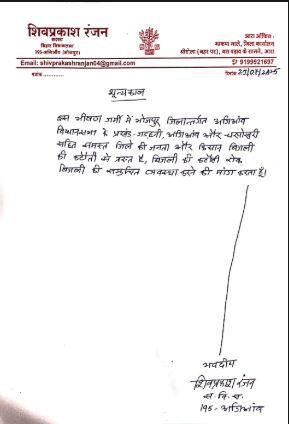 शिवप्रकाश रंजन
सदस्य
बिहार विधानसभा
195-अगिआँव (भोजपुर)
आरा ऑफिस :
भाकपा माले, जिला कार्यालय
श्रीटोला (महार पर), बस पड़ाव के सामने, आरा
Email: shivprakashranjan04@gmail.com
9199921697
पत्रांक
दिनांक 20/07/2025
शून्यकाल
इस भीषण गर्मी में भोजपुर जिलान्तर्गत अगिआँव
विधानसभा के प्रखंड-गड़हनी, अगिआँव और चरपोखरी
सहित समस्त जिले की जनता और किसान बिजली
की कटौती से त्रस्त है, बिजली की कटौती रोक
बिजली की समुचित व्यवस्था करने की मांग करता हूँ।
भवदीय
शिवप्रकाश रंजन
स. वि. स.
195-अगिआँव